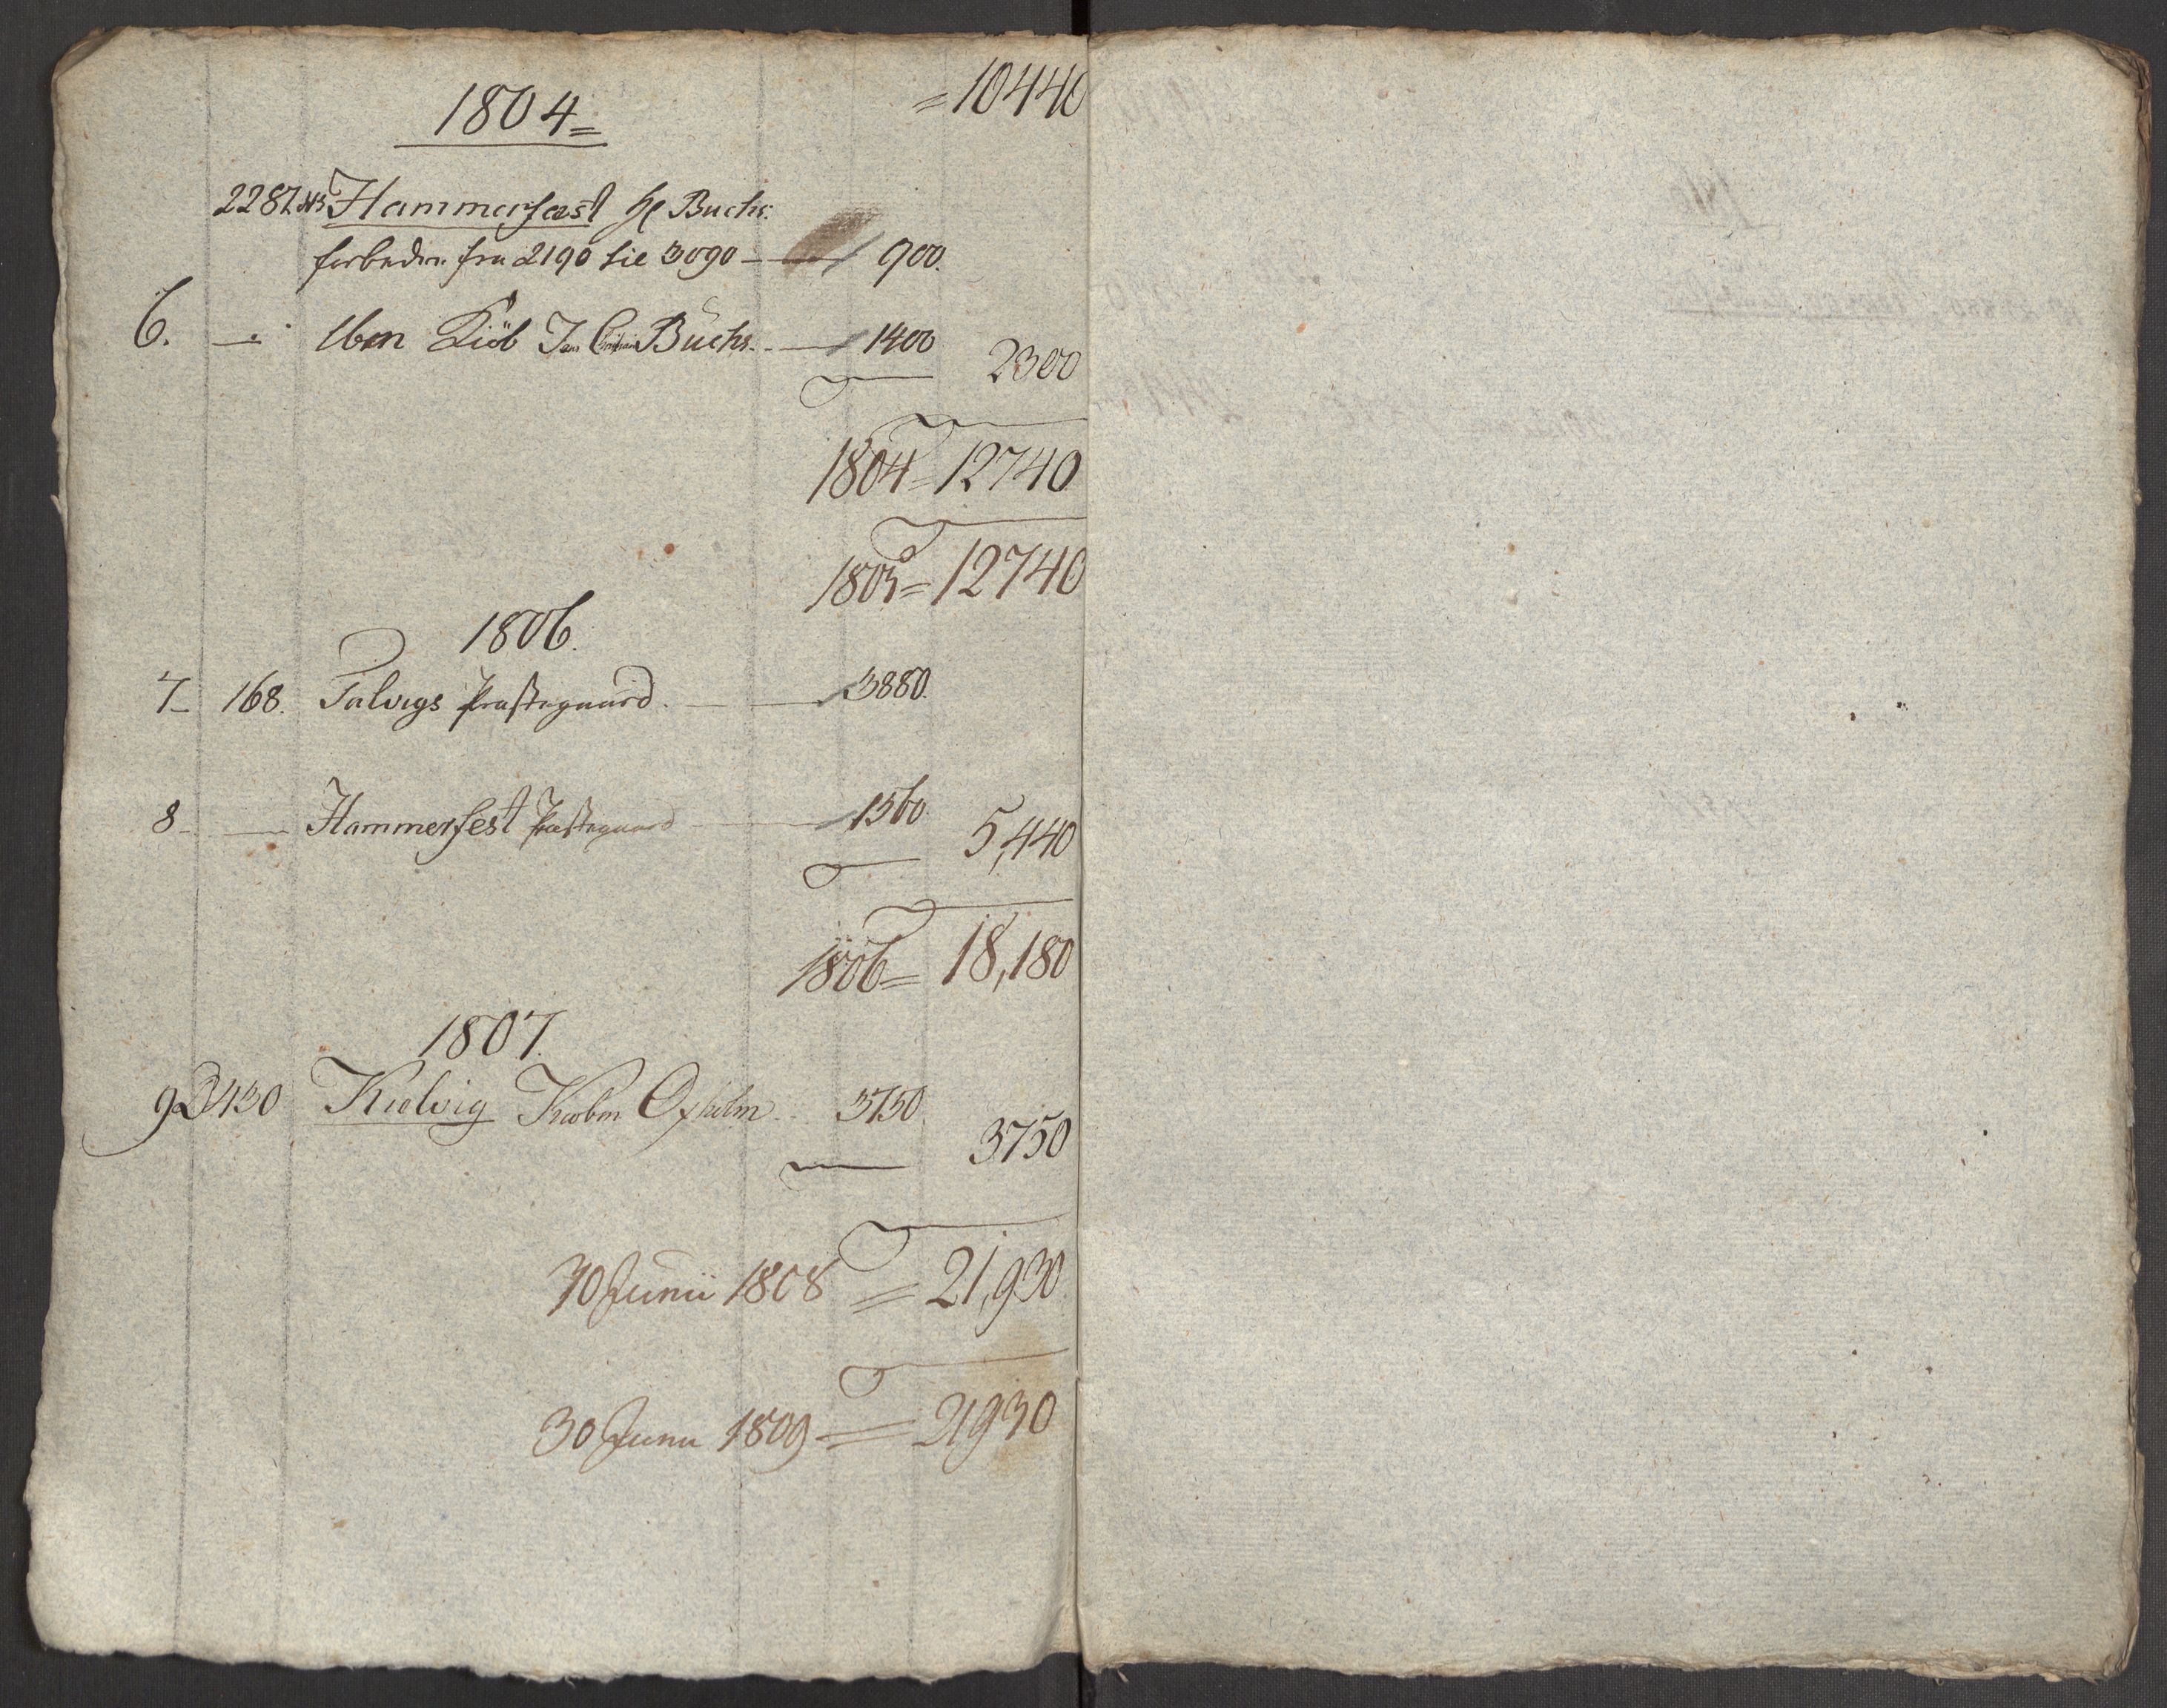 1804 = = 10440
2287. N3 Hammerfæst Hr Buchs:
forbedr. fra 2190 til 3090 — 900.
6. — Ibm Kiöb Jan Christian Buchs. — 1400 2300
1804 = 12740
1805 = 12740
1806.
7 — 168. Talvigs Præstegaard. — 3880.
8 — — Hammerfest Præstegaard — 1560. 5,440
1806 = 18,180
1807.
9 23430 Kielvig Kiøbm Oxholm. 3750. 3750
30 Junii 1808 = 21,930
30 Junii 1809 = 21930